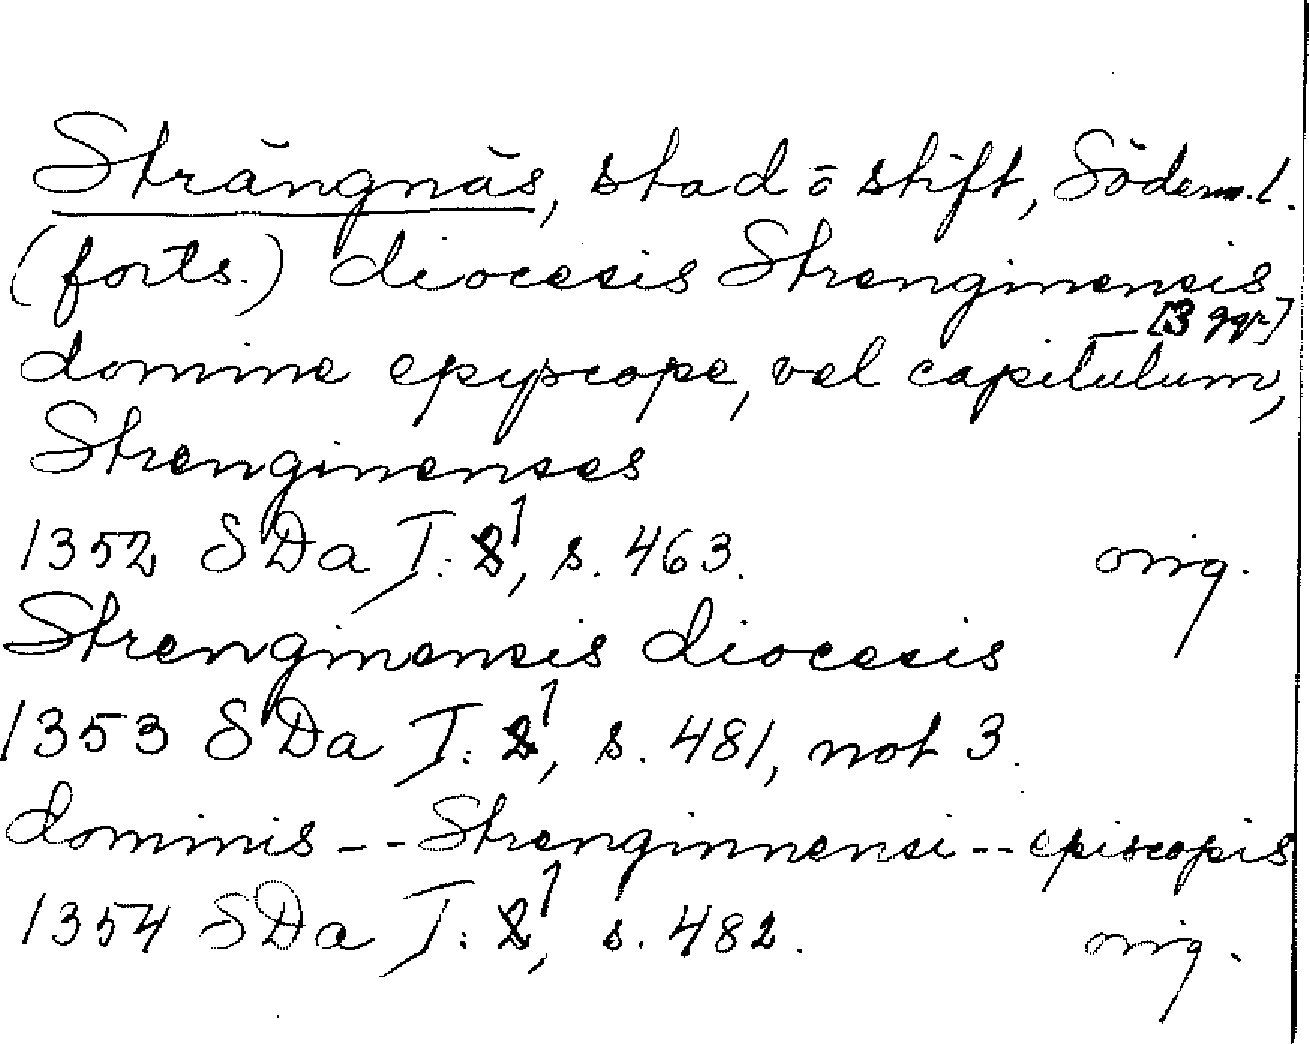 Strängnäs, stad o stift, Söderm.l.
(forts.) diocesis Strenginensis
[3 ggr]
domine epyscope, vel capitulum,
Strenginenses
1352 SDa I: 1, s. 463. orig.
Strenginensis diocesis
1353 SDa I: 1, s. 481, not 3.
dominis -- Strenginnensi -- episcopis
1354 SDa I: 1, s. 482. orig.